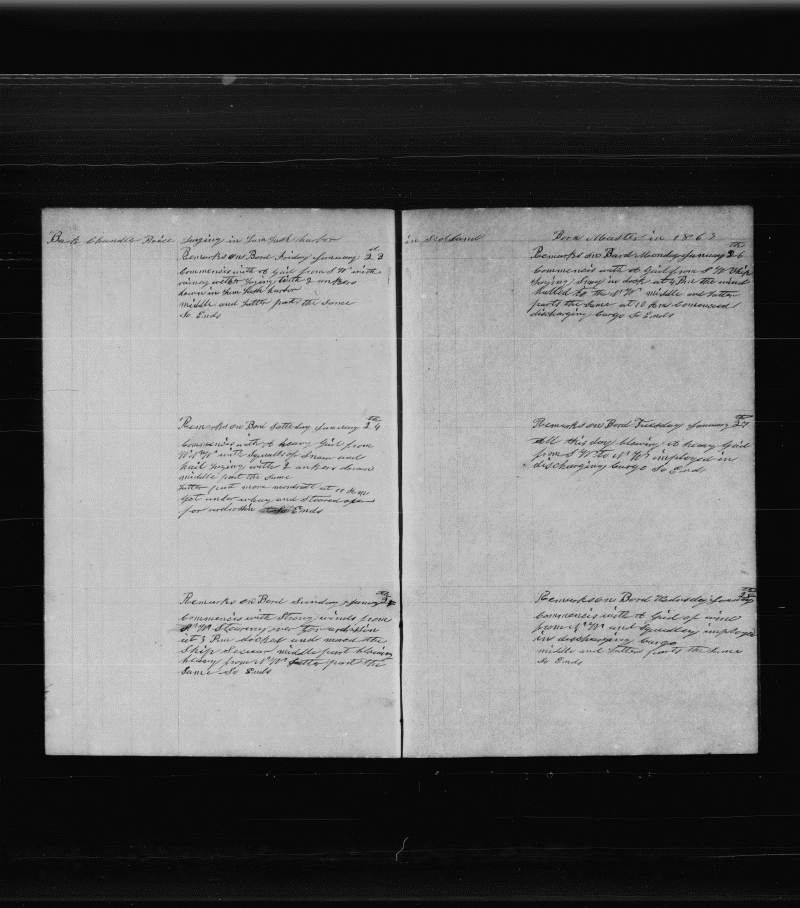 Bark Chandler Price Laying in Lam Lash harbor
Remarks on Bord Friday January 23
Commences with A Gail from S W with
rainey wether Laying with 2 ankers
down in Lam Lash harbor
middle and Latter part the Same
So Ends
Remarks on Bord Satterday January 24
Commences with A heavy Gail from
W N W with Squalls of Snow and
hail Laying with 2 ankers down
middle part the Same
Latter part more mordrate at 10 A m
Got under whay and Steared
for ardrossin So Ends
Remarks on Bord Sunday January
Commences with Strong winds from
Stearing over for ardrossin
at 3 P m docked and mored the
Ship Secear middle part blowing
heavy from N W Latter part the
Same So Ends
in Scotland Master in 1863
Remarks on Bord Monday January 26
Commences with A Gail from S W Ship
Laying in dock at 4 P m the wind
halled to the N W middle and Latter
parts the Same at 10 A m Comenced
discharging Cargo So Ends
Remarks on Bord Tuesday January 27
All this day blowing A heavy Gail
from S W to N W imployed in
discharging Cargo So Ends
Remarks on Bord Wedusday January
Commences with A Gail of wind
from N W and Squalley imployed
in discharging Cargo
middle and Latter parts the Same
So Ends